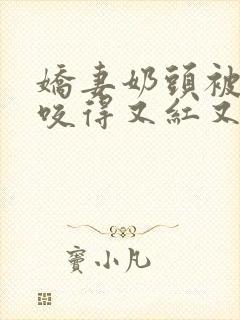 嬌妻奶頭被
咬得又紅又
竇小凡